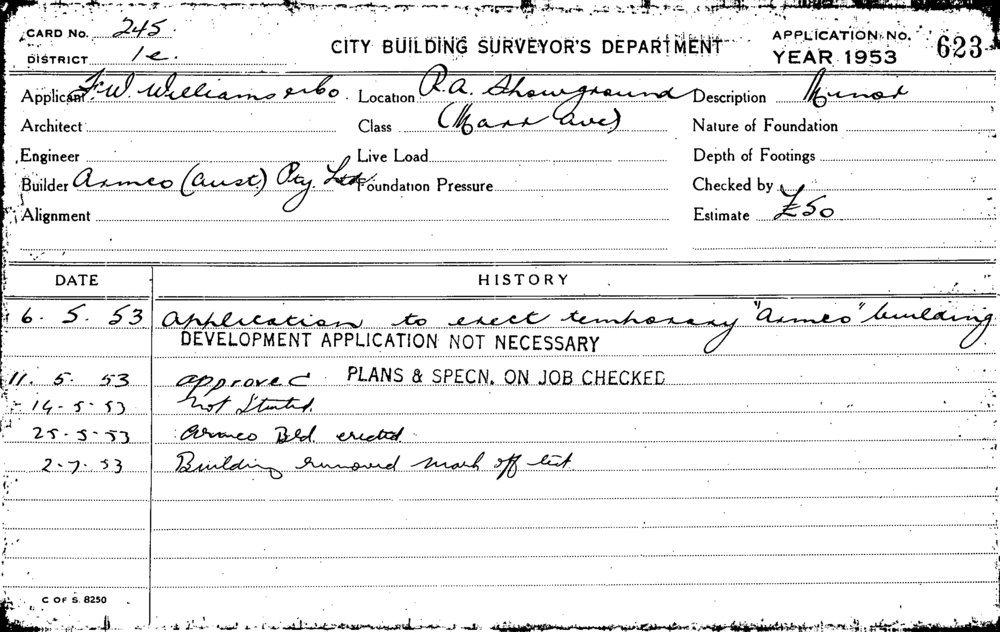 CARD No. 245
DISTRICT 1e.
CITY BUILDING SURVEYOR'S DEPARTMENT
APPLICATION No. 623
YEAR 1953
Applicant F. W. Williams & Co. Location R.A. Showground Description Minor
Architect Class (Marr Ave) Nature of Foundation
Engineer Live Load Depth of Footings
Builder Armco (Aust) Pty. Ltd Foundation Pressure Checked by
Alignment Estimate £50
DATE HISTORY
6. 5. 53 Application to erect temporary "Armco" building.
DEVELOPMENT APPLICATION NOT NECESSARY
11. 5. 53 approved PLANS & SPECN. ON JOB CHECKED
14-5-53 Not Started.
25-5-53 Armco Bld. erected.
2-7-53 Building removed mark off list
C OF S. 8250